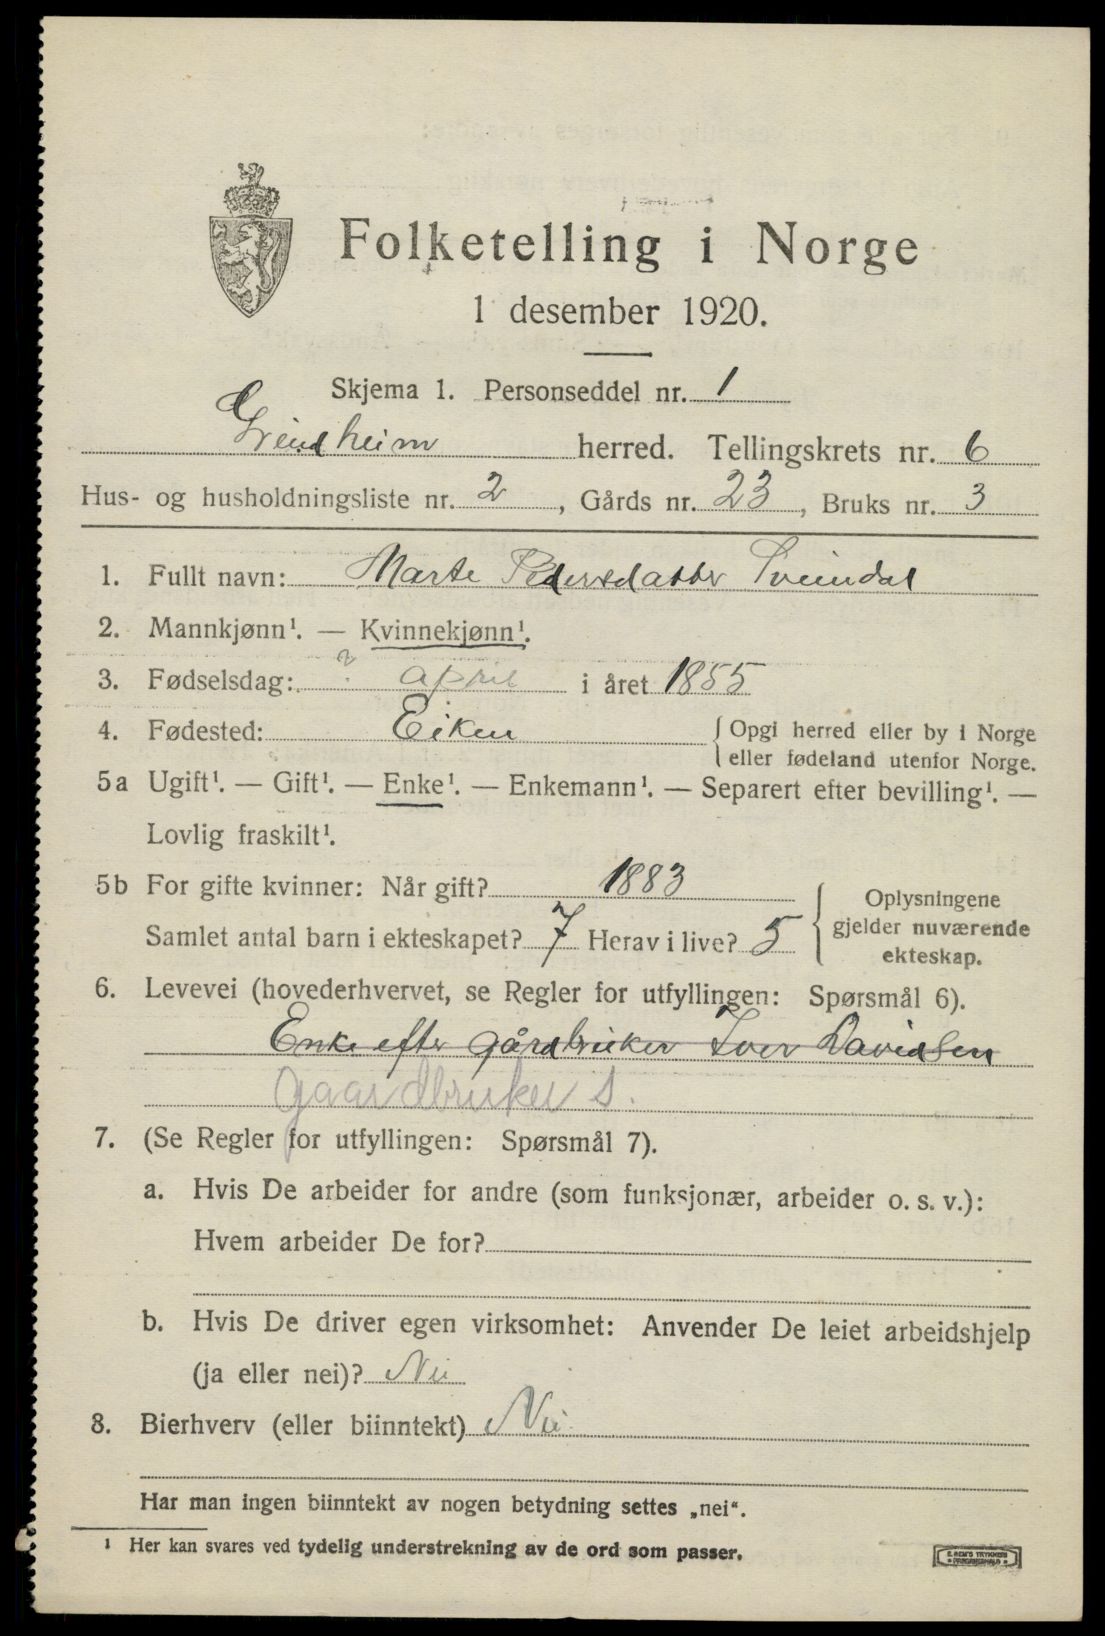 Folketelling i Norge
1 desember 1920.
Skjema 1. Personseddel nr. 1
Grindheim herred. Tellingskrets nr. 6
Hus- og husholdningsliste nr. 2, Gårds nr. 23, Bruks nr. 3
1. Fullt navn: Marte Pedersdatter Sveindal
2. Mannkjønn¹. — Kvinnekjønn¹.
3. Fødselsdag: ? april i året 1855
4. Fødested: Eiken { Opgi herred eller by i Norge
eller fødeland utenfor Norge.
5a Ugift¹. — Gift¹. — Enke¹. — Enkemann¹. — Separert efter bevilling¹. —
Lovlig fraskilt¹.
5b For gifte kvinner: Når gift? 1883
Samlet antal barn i ekteskapet? 7 Herav i live? 5 { Oplysningene
gjelder nuværende
ekteskap.
6. Levevei (hovederhvervet, se Regler for utfyllingen: Spørsmål 6).
Enke efter gårdbruker Iver Davidsen
Gaardbruker S.
7. (Se Regler for utfyllingen: Spørsmål 7).
a. Hvis De arbeider for andre (som funksjonær, arbeider o. s. v.):
Hvem arbeider De for?
b. Hvis De driver egen virksomhet: Anvender De leiet arbeidshjelp
(ja eller nei)? Nei
8. Bierhverv (eller biinntekt) Nei
Har man ingen biinntekt av nogen betydning settes „nei“.
¹ Her kan svares ved tydelig understrekning av de ord som passer.